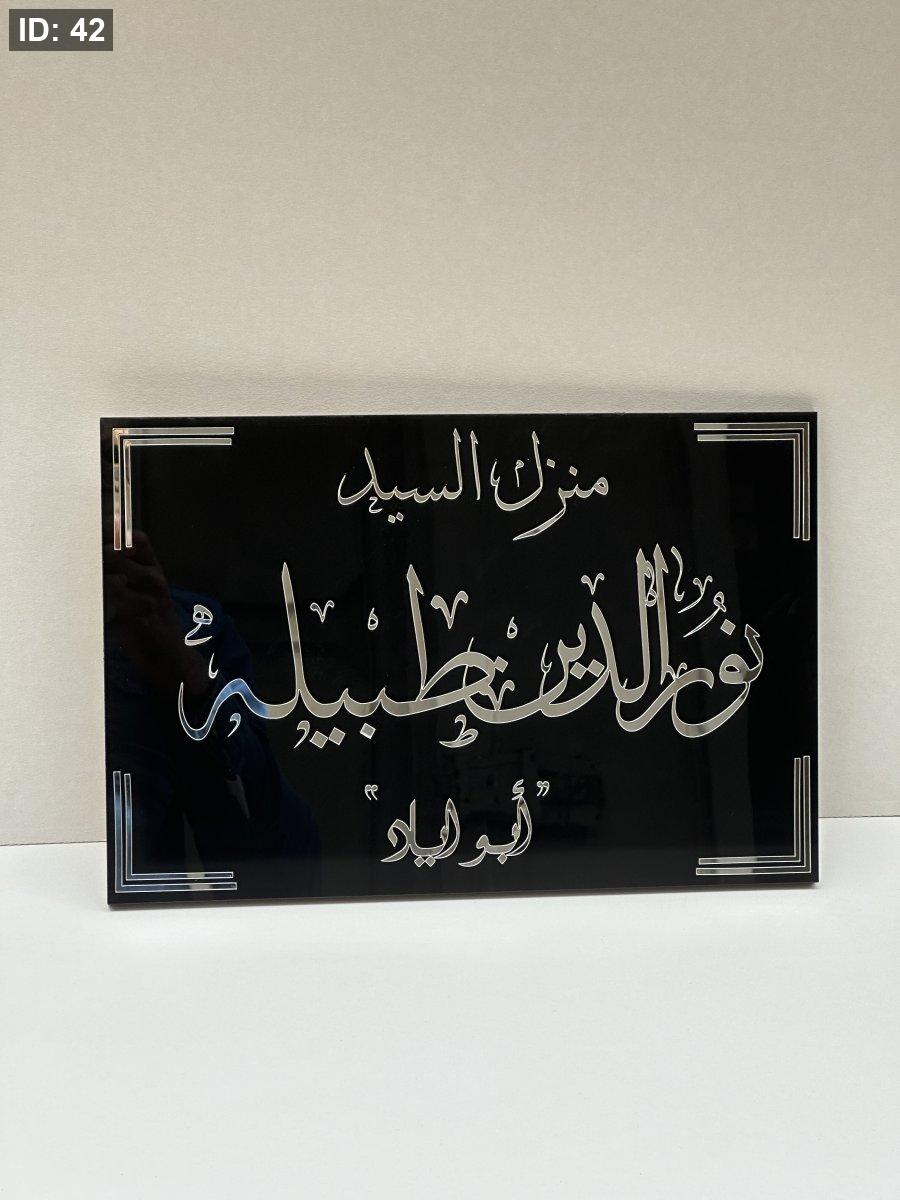 ID: 42
منزل السيد
نُور الدين طبيله
"أبو اياد"